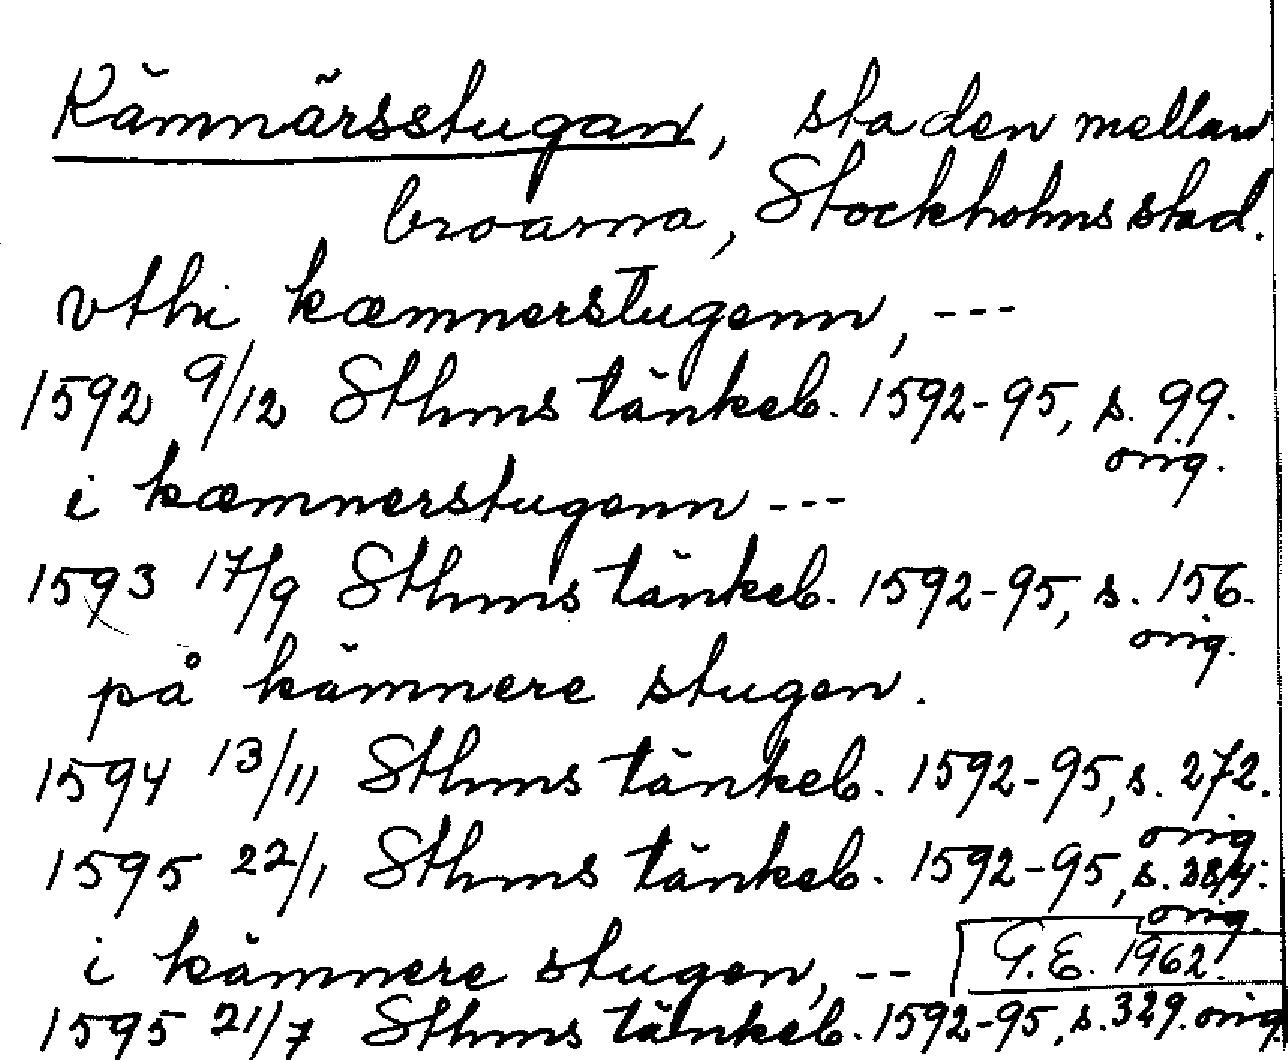 Kämnärsstugan, staden mellan
broarna, Stockholms stad.
vthi kæmnerstugenn, ---
1592 9/12 Sthms tänkeb. 1592-95, s. 99.
orig.
i kæmnerstugenn ---
1593 17/9 Sthms tänkeb. 1592-95, s. 156.
orig.
på kämnere stugen.
1594 13/11 Sthms tänkeb. 1592-95, s. 272.
orig.
1595 22/1 Sthms tänkeb. 1592-95, s.
orig.
i kämnere stugen, --
G.E. 1962.
1595 21/7 Sthms tänkeb. 1592-95, s. 329. orig.